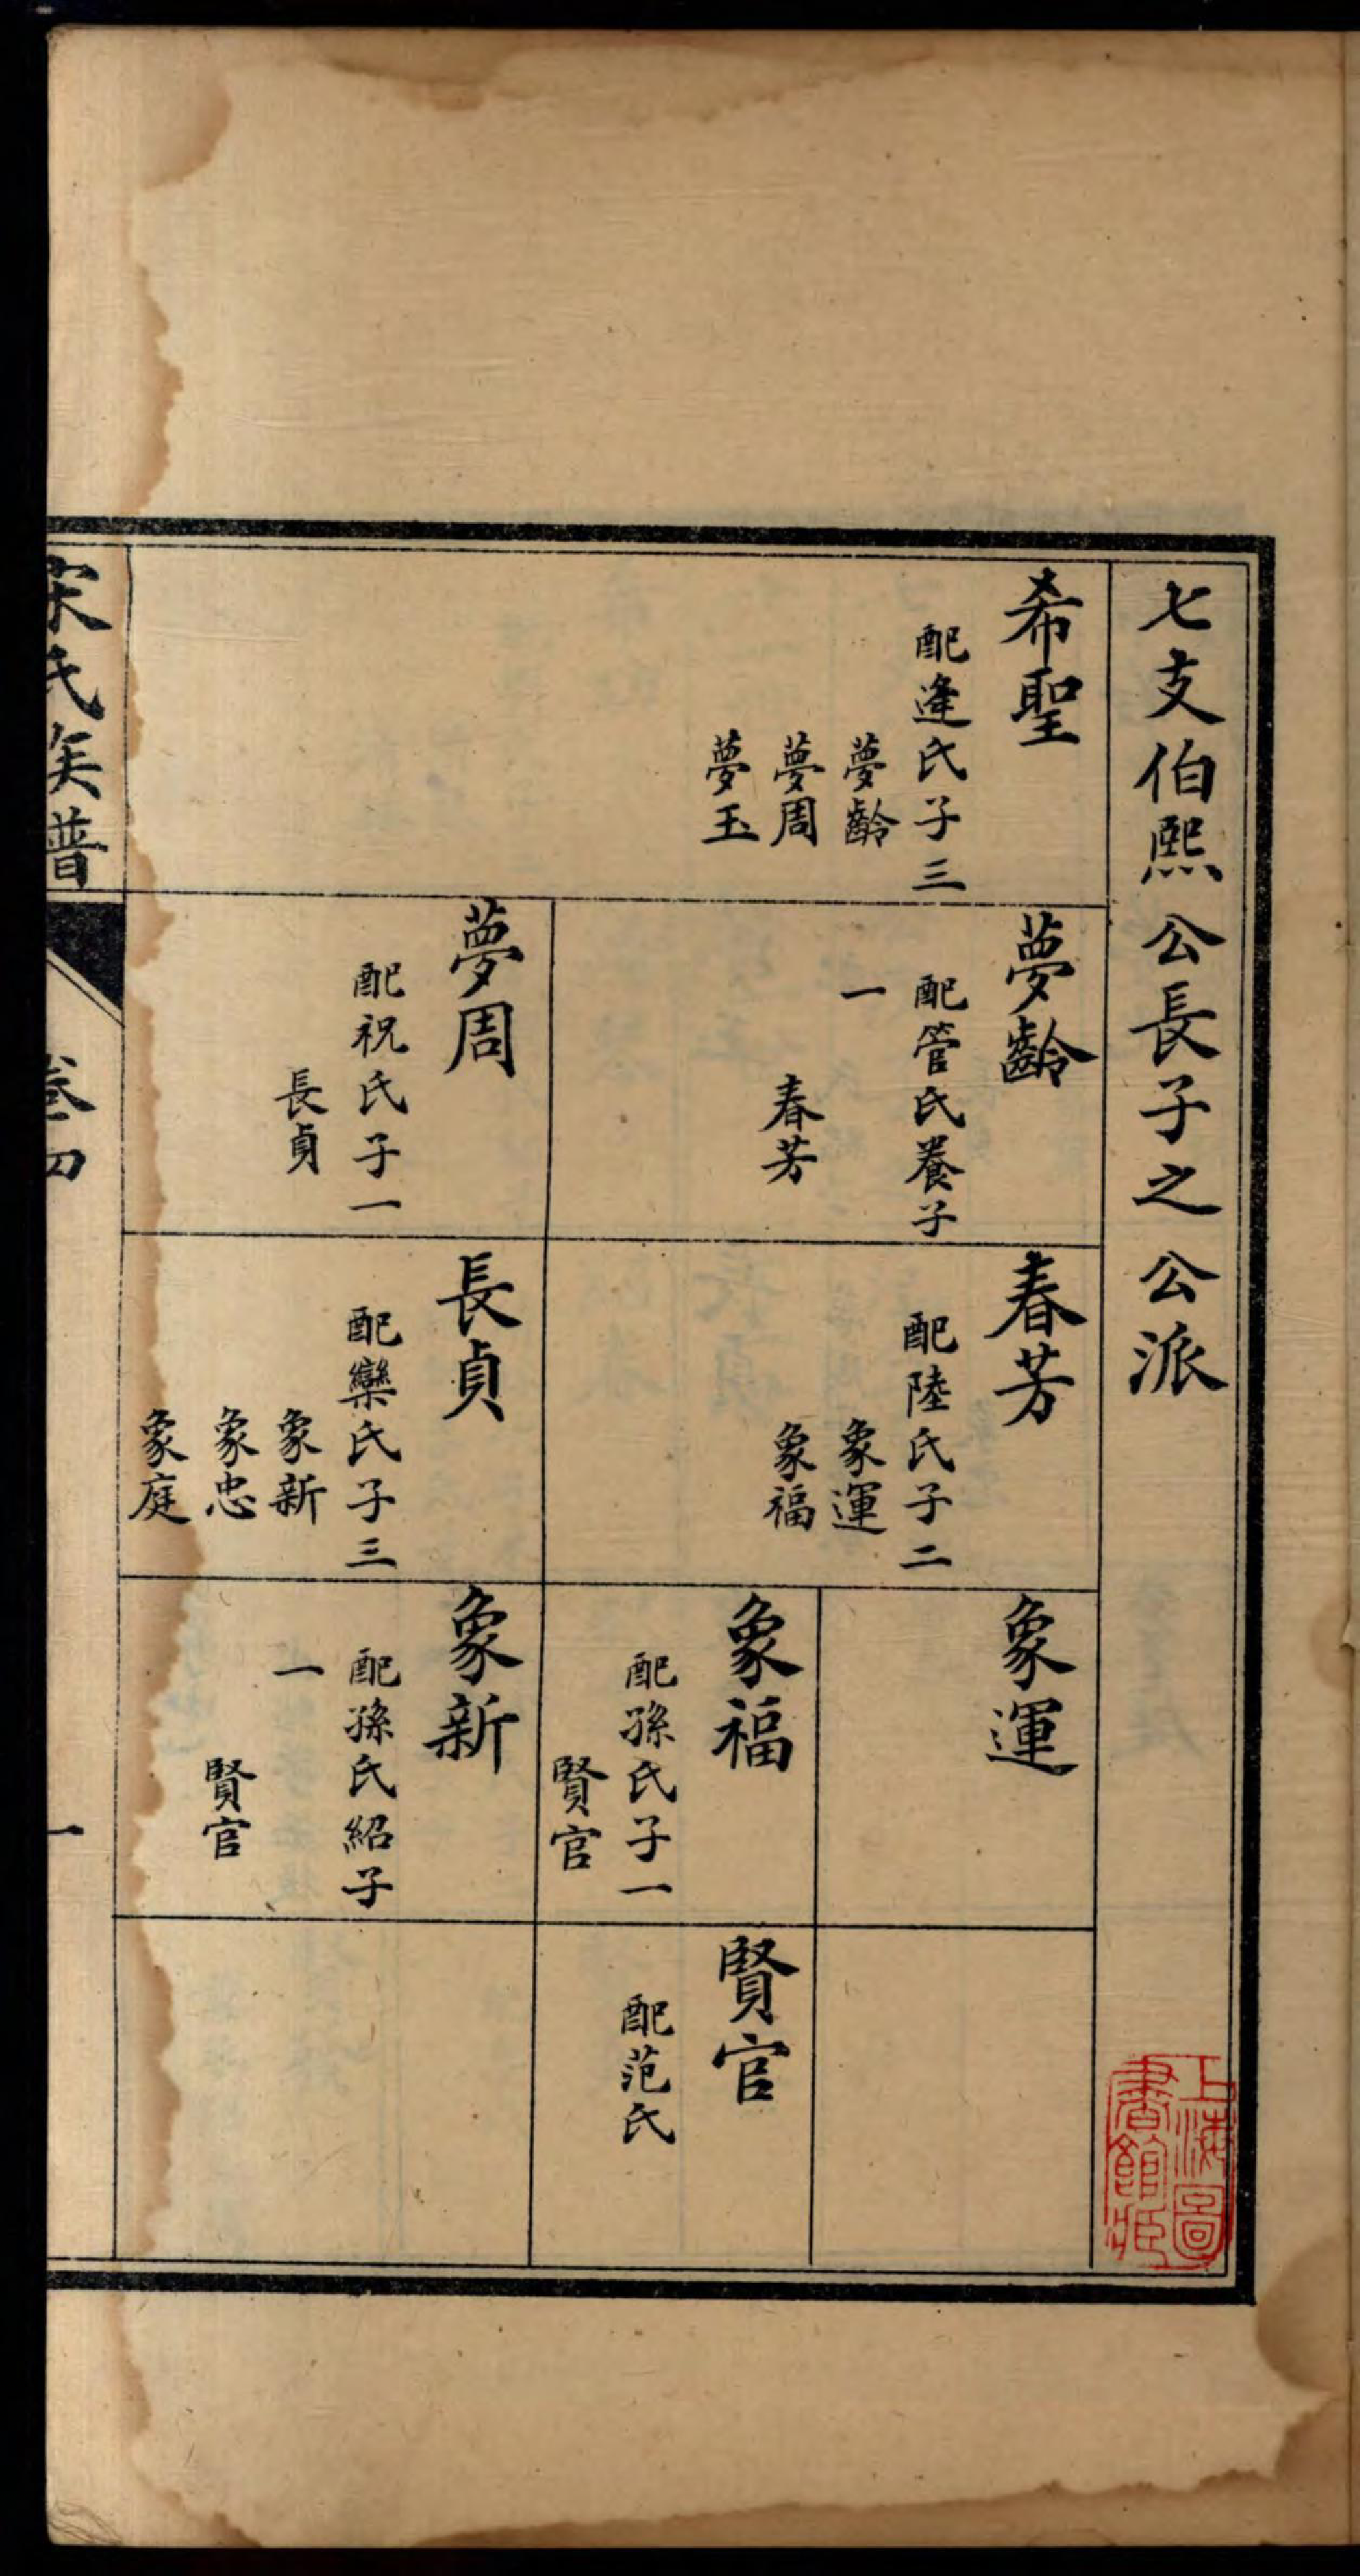 七支伯熙公長子之公派
希聖
配逄氏子三
夢齡
夢周
夢玉
夢齡
配管氏養子
一
春芳
夢周
配祝氏子一
長貞
春芳
配陸氏子二
象運
象福
長貞
配欒氏子三
象新
象忠
象庭
象運
象福
配孫氏子一
賢官
象新
配孫氏紹子
一
賢官
賢官
配范氏
宋氏族譜
卷四
一
上海圖
書館藏